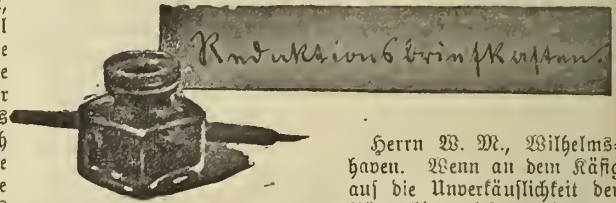 Redaktionsbriefkasten.
Herrn W. M., Wilhelms=
haven. Wenn an dem Käfig
auf die Unverkäuflichkeit der